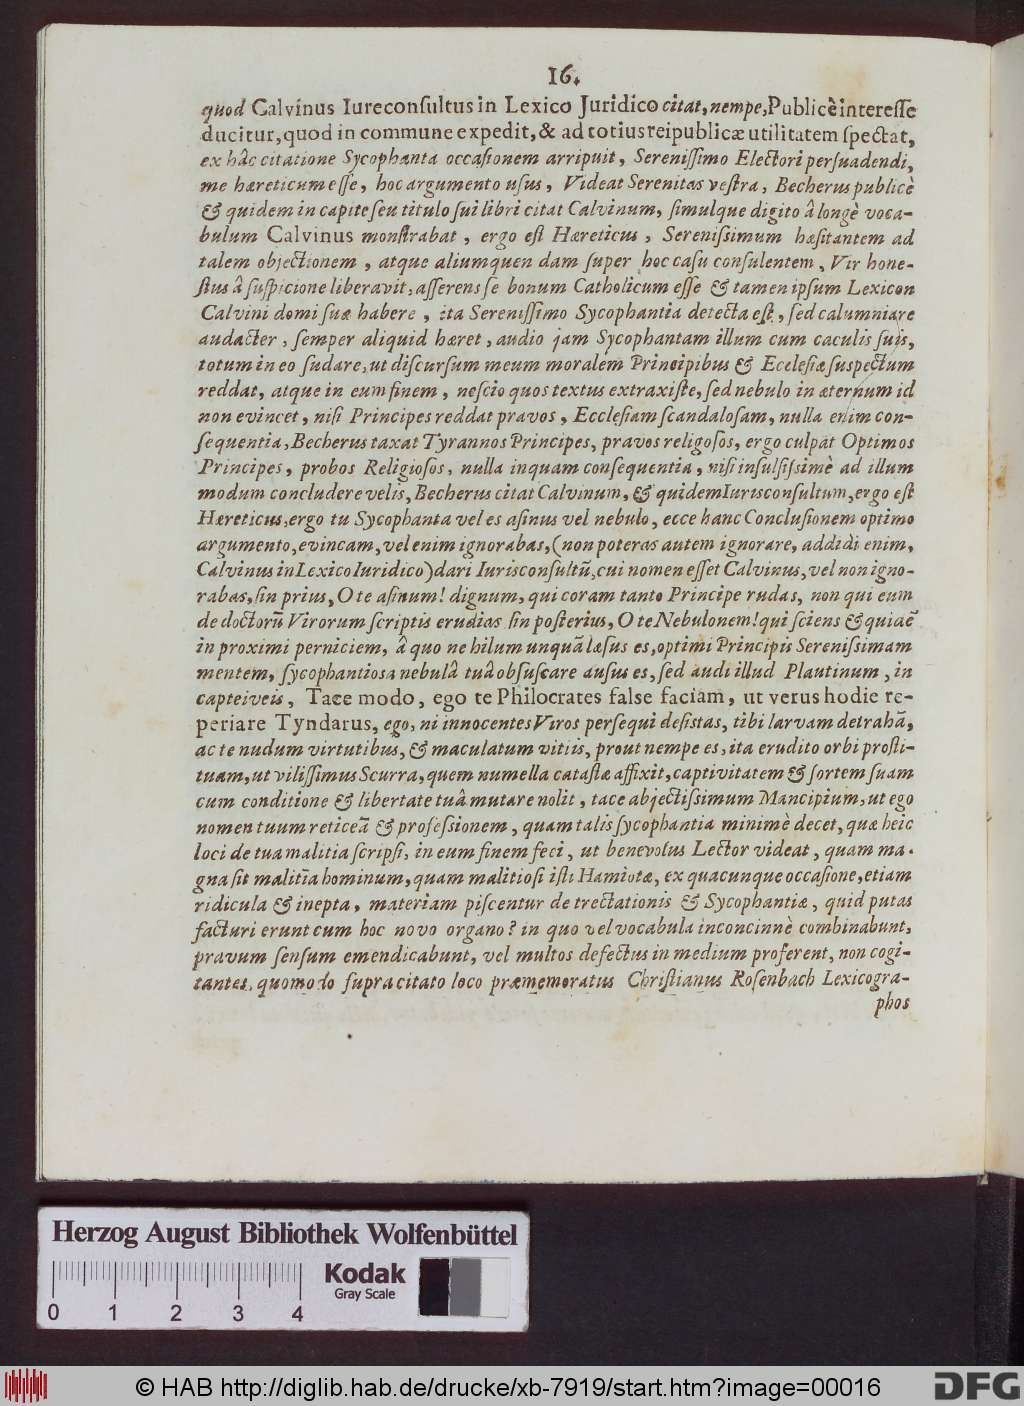 16.
quod Calvinus Iureconſultus in Lexico Juridico citat, nempe, Publicè intereſſe
ducitur, quod in commune expedit, & ad totius reipublicæ utilitatem ſpectat,
ex hâc citatione Sycophanta occaſionem arripuit, Sereniſſimo Electori perſuadendi,
me hæreticum eſſe, hoc argumento uſus, Videat Serenitas veſtra, Becherus publicè
& quidem in capite ſeu titulo ſui libri citat Calvinum, ſimulque digito â longè voca-
bulum Calvinus monſtrabat, ergo eſt Hæreticus, Sereniſſimum hæſitantem ad
talem objectionem, atque aliumquen dam ſuper hoc caſu conſulentem, Vir hone-
ſtus â ſuſpicione liberavit, aſſerens ſe bonum Catholicum eſſe & tamen ipſum Lexicon
Calvini domi ſuæ habere, ita Sereniſſimo Sycophantia detecta eſt, ſed calumniare
audacter, ſemper aliquid hæret, audio jam Sycophantam illum cum caculis ſuis,
totum in eo ſudare, ut diſcurſum meum moralem Principibus & Eccleſiæ ſuspectum
reddat, atque in eum finem, neſcio quos textus extraxiſte, ſed nebulo in æternum id
non evincet, niſi Principes reddat pravos, Eccleſiam ſcandaloſam, nulla enim con-
ſequentia, Becherus taxat Tyrannos Principes, pravos religoſos, ergo culpat Optimos
Principes, probos Religioſos, nulla inquam conſequentia, niſi inſulſiſsimè ad illum
modum concludere velis, Becherus citat Calvinum, & quidem Iurisconſultum, ergo eſt
Hæreticus, ergo tu Sycophanta vel es aſinus vel nebulo, ecce hanc Concluſionem optimo
argumento, evincam, vel enim ignorabas, (non poteras autem ignorare, addidi enim,
Calvinus in Lexico Iuridico) dari Iurisconſultũ, cui nomen eſſet Calvinus, vel non igno-
rabas, ſin prius, O te aſinum! dignum, qui coram tanto Principe rudas, non qui eum
de doctorũ Virorum ſcriptis erudias ſin poſterius, O te Nebulonem! qui ſciens & quiaẽ
in proximi perniciem, â quo ne hilum unquã læſus es, optimi Principis Sereniſſimam
mentem, ſycophantiosa nebulâ tuâ obfuſcare auſus es, ſed audi illud Plautinum, in
capteiveis, Tace modo, ego te Philocrates false faciam, ut verus hodie re-
periare Tyndarus, ego, ni innocentes Viros perſequi deſistas, tibi larvam detrahã,
ac te nudum virtutibus, & maculatum vitiis, prout nempe es, ita erudito orbi proſti-
tuam, ut viliſſimus Scurra, quem numella cataſtæ affixit, captivitatem & ſortem ſuam
cum conditione & libertate tuâ mutare nolit, tace abjectiſsimum Mancipium, ut ego
nomen tuum reticeã & profeſsionem, quam talis ſycophantia minimè decet, quæ heic
loci de tua malitia ſcripſi, in eum finem feci, ut benevolus Lector videat, quam ma-
gna ſit malitia hominum, quam malitioſi iſti Hamiotæ, ex quacunque occaſione, etiam
ridicula & inepta, materiam piſcentur detrectationis & Sycophantiæ, quid putas
facturi erunt cum hoc novo organo? in quo vel vocabula inconcinnè combinabunt,
pravum ſenſum emendicabunt, vel multos defectus in medium proferent, non cogi-
tantes, quomodo ſupra citato loco præmemoratus Chriſtianus Roſenbach Lexicogra-
phos
Herzog August Bibliothek Wolfenbüttel
0 1 2 3 4
Kodak
Gray Scale
© HAB http://diglib.hab.de/drucke/xb-7919/start.htm?image=00016
DFG